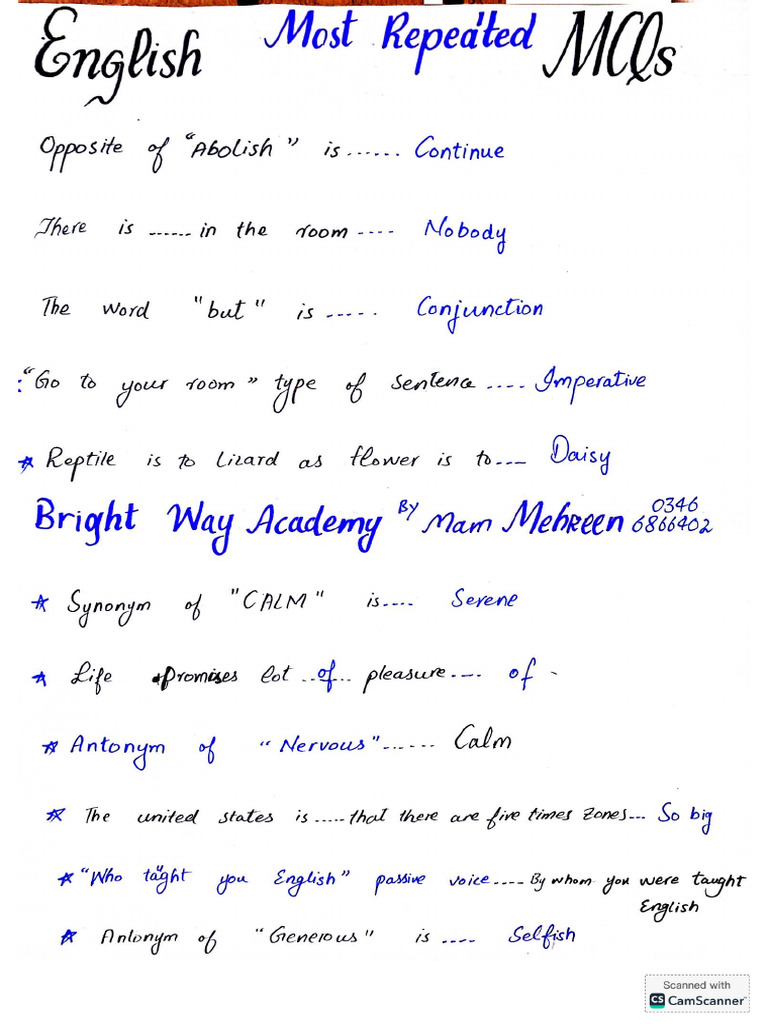 English Most Repeated MCQs
Opposite of "Abolish" is ...... Continue
There is ...... in the room .... Nobody
The word "but" is ..... Conjunction
: "Go to your room" type of sentence .... Imperative
☆ Reptile is to Lizard as flower is to .... Daisy
Bright Way Academy By Mam Mehreen 0346
6866402
☆ Synonym of "CALM" is .... Serene
☆ Life Promises lot ..of.. pleasure .... of -
☆ Antonym of "Nervous" ...... Calm
☆ The united states is ..... that there are five times zones ... So big
☆ "Who taught you English" passive voice .... By whom you were taught
English
☆ Antonym of "Generous" is .... Selfish
Scanned with
CS CamScanner